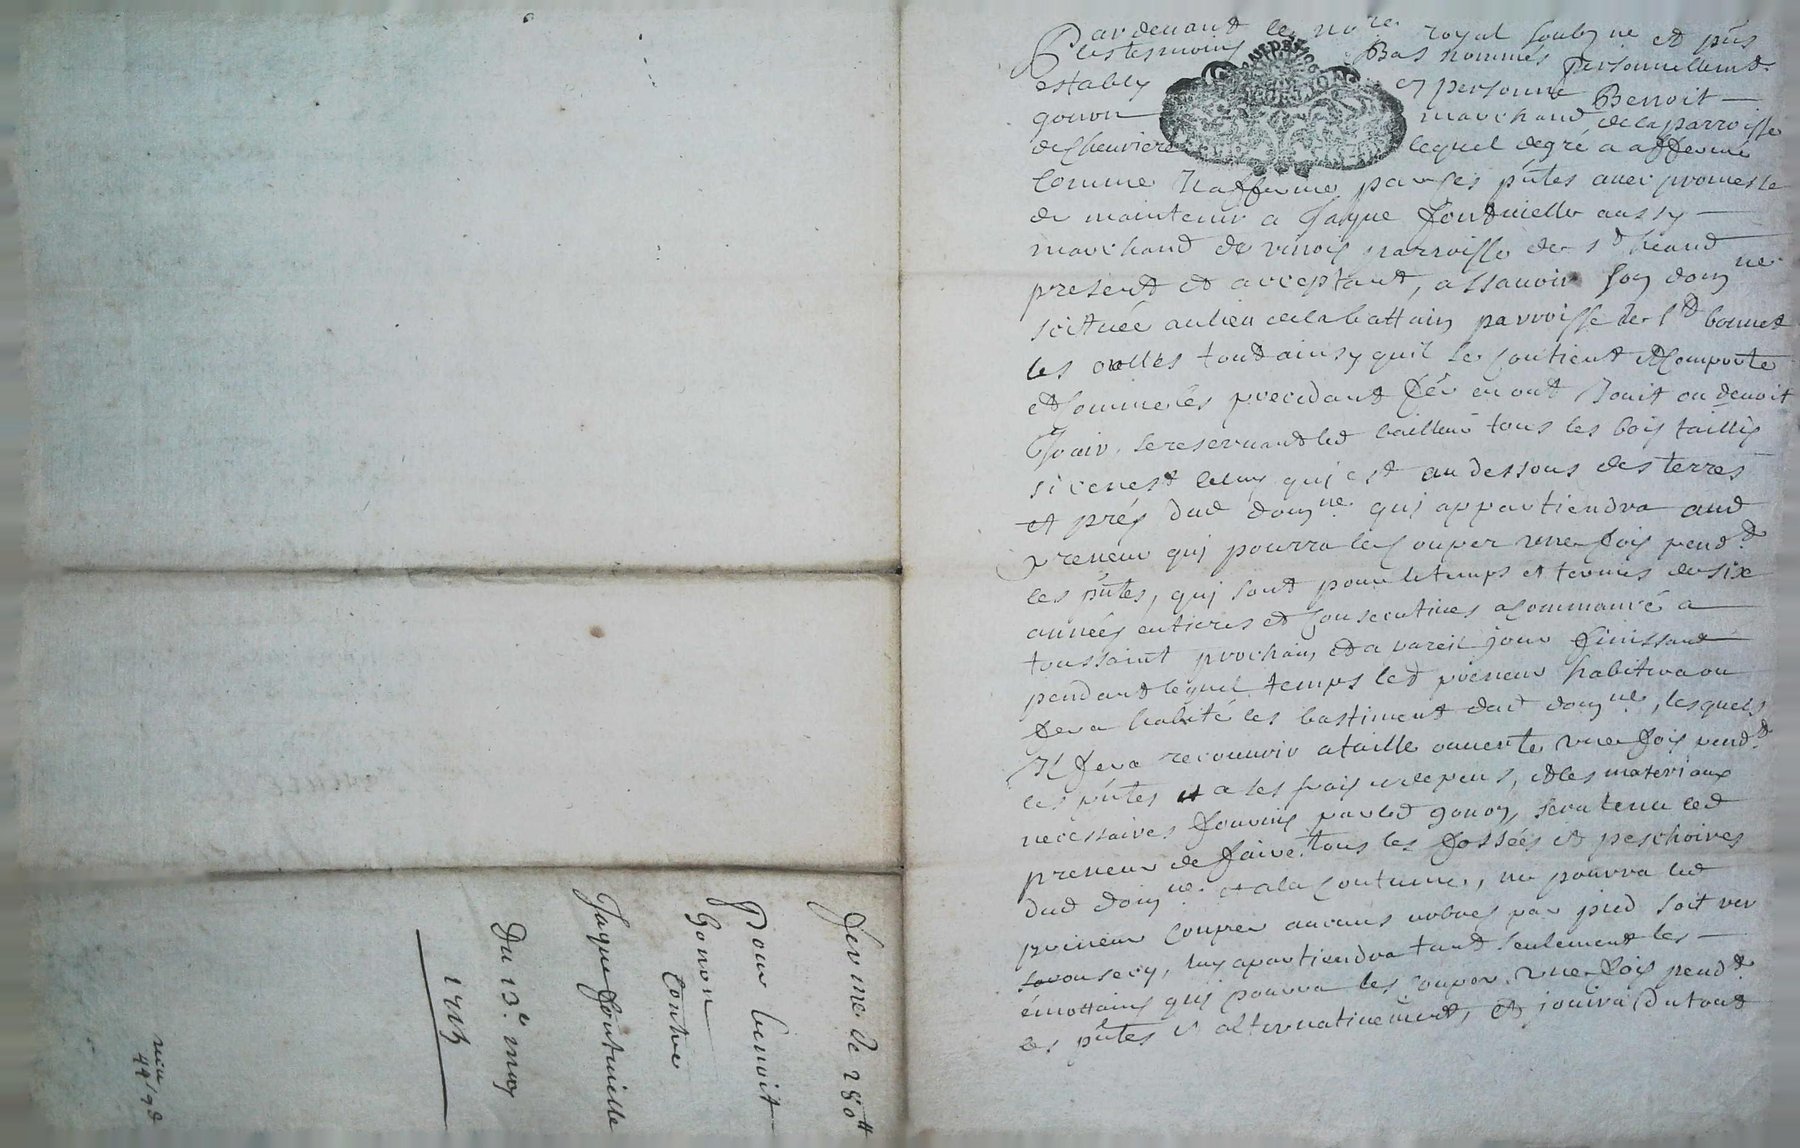 Pardevant le no.re royal soubz.ne et p̃ns
les tesmoins Bas nommés personnellem.t
establÿ en personne Benoit
gonon marchand de la parroisse
de Chevriere lequel de gré a affermé
comme il afferme par ces p̃ntes avec promesse
de maintenir a Jaque fontvielle aussy
marchand de parroisse de s.t heand
present et acceptant, a ssavoir son dom.ne
scittuée au lieu de la battain parroisse de s.t bonnet
les oulles tout ainsy quil se contient et comporte
et comme les precedant fer en ont Jouit ou devoit
Jouir, se reservant led bailleur tous les bois taillis
si ce nest celuy qui est au dessous des terres
et prés dud dom.ne qui appartiendra aud
preneur qui pourra les couper une fois pend.t
les p̃ntes, qui sont pour le temps et termes de six
années entieres et consecutives a commancé a
toussaint prochain et a pareil jour finissant
pendant lequel temps led preneur habitera ou
fera habité les bastiment dud dom.ne, lesquels
Il fera recouvrir a taille ouverte une fois pend.t
les p̃ntes et a ses frais et depens, et les materiaux
necessaires fournis par led gonon, sera tenu led
preneur de faire tous les fossées et peschoires
dud dom.ne et a la coutume, ne pourra led
preneur couper aucuns arbres par pied soit ver
ou secq, luy apartiendra tant seulement les
émottains qui pourra les couper une fois pend.t
les p̃ntes et alternativement, et jouira du tout
ferme de 280tt
Pour benoit
Gonon
Contre
Jaque fontvielle
Du 13.e may